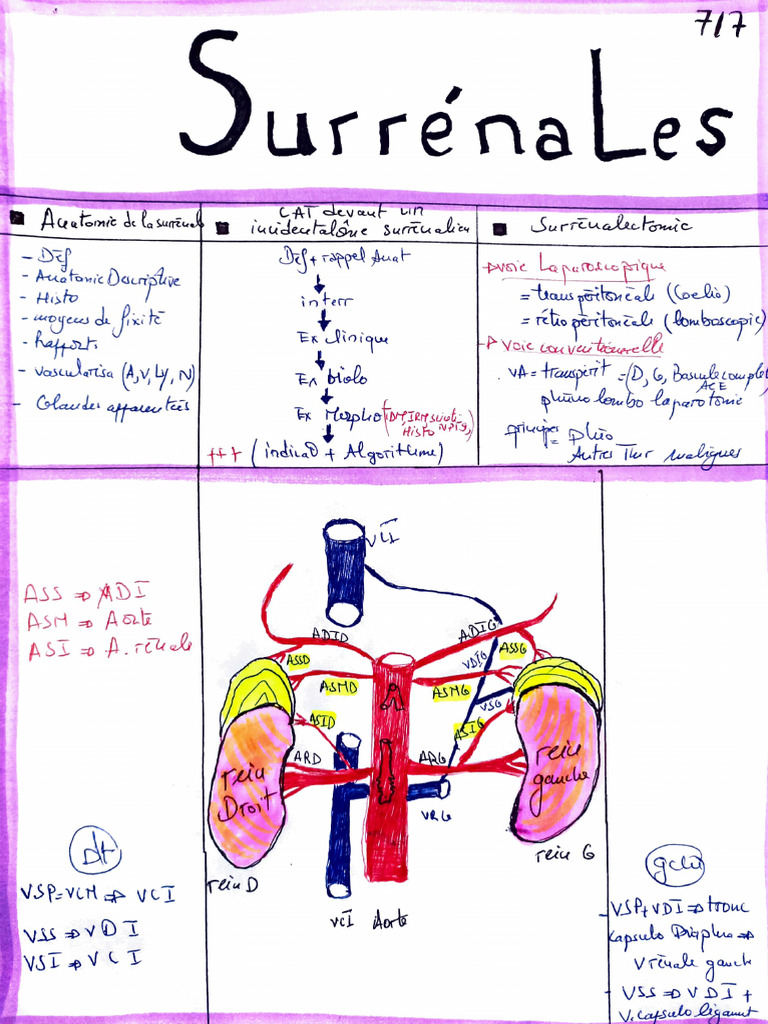 7/7
Surrénales
■ Anatomie de la surrénale
- Déf
- Anatomie Descriptive
- Histo
- moyens de fixité
- Rapports
- vascularisa (A, V, Ly, N)
- Glandes apparentées
■ CAT devant un
incidentalôme surrénalien
Déf + rappel Anat
interr
Ex clinique
Ex biolo
Ex Morpho
Histo
+++ (indica° + Algorithme)
■ Surrénalectomie
voie Laparoscopique
= transpéritonéale (Coelio)
= rétropéritonéale (lomboscopie)
voie conventionnelle
VA = transpérit = (D, G, Bascule complet
phréno lombo laparotomie
principes = phéo
Autres Tmr malignes
ASS ⇒ ADI
ASM ⇒ Aorte
ASI ⇒ A. rénale
VCI
ADID
ADIG
ASSD
ASSG
VDIG
ASMD
ASMG
VSG
ASID
ASIG
ARD
ARG
rein
Droit
rein
gauche
VRG
rein D
rein G
VCI
Aorte
dt
VSP = VCM ⇒ VCI
VSS ⇒ VDI
VSI ⇒ VCI
gche
VSP + VDI ⇒ tronc
Capsulo Diaphra ⇒
V rénale gauch
VSS ⇒ VDI +
V. capsulo ligamt